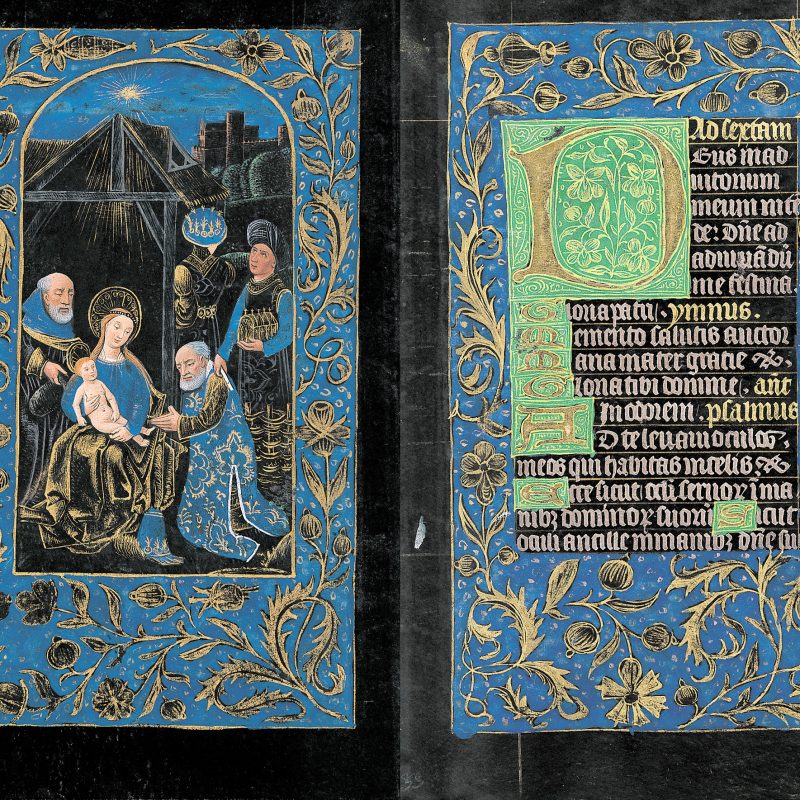 Ad sextam
DEus in ad
iutorium
meum inte
de: Dñe ad
adiuuādū
me festina.
Gloria patri. ymnus.
Memento salutis auctor
Maria mater gratie &c.
Gloria tibi domine. añt
In odorem. psalmus
AD te leuaui oculos
meos qui habitas in celis. &c
Ecce sicut ocli seruoꝝ ī ma
nibꝫ dominoꝝ suoꝝ. Sicut
oculi ancille in manibꝫ dñe su